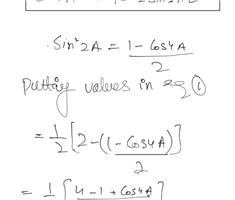 Sin²2A = (1 - Cos4A)/2
Putting values in eq ①
= 1/2 [2 - (1 - Cos4A)/2]
= 1/2 [4 - 1 + Cos4A]